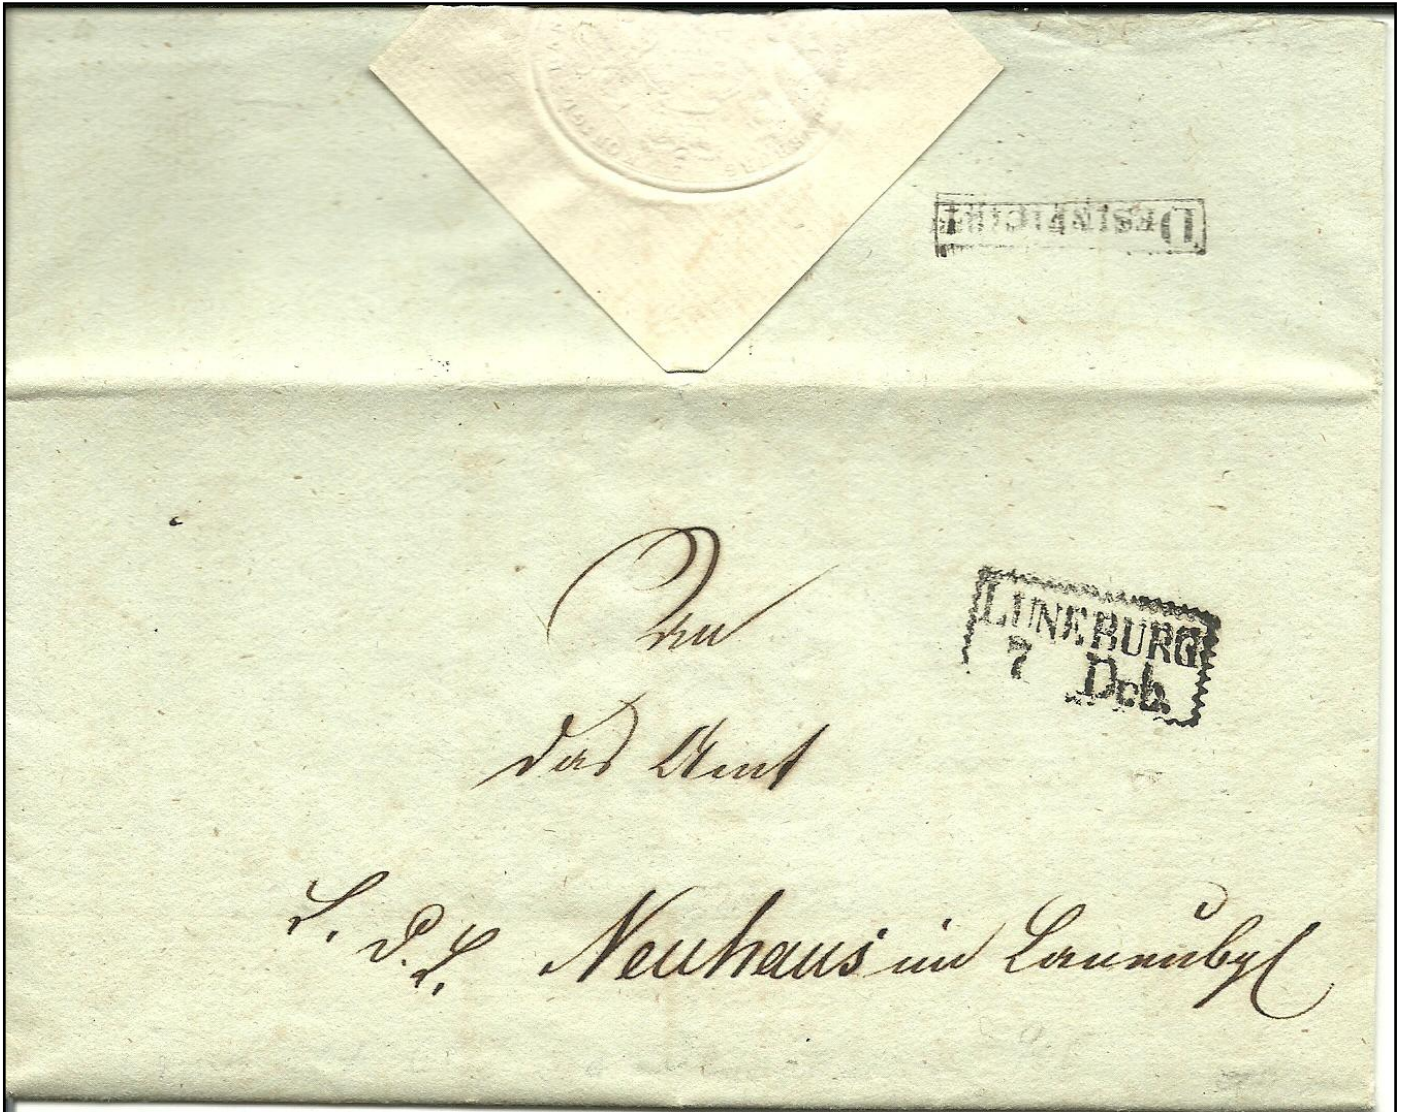 DESINFICIRT
LÜNEBURG
7 Dcb.
An
das Amt
Neuhaus im Lauenbgl